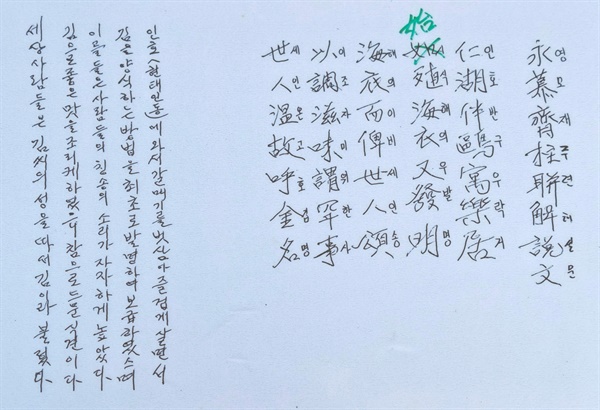 永영慕모齊재柱주聯련解해說설文문
仁인湖호伴반鷗구寓우樂락居거
始시殖식海해衣의又우發발明명
海해衣의而이俾비世세人인頌송
以이調조滋자味미謂위罕한事사
世세人인溫온故고呼호金김名명
인호(현태인동)에와서 갈매기를벗삼아 즐겁게 살면서
김을 양식하는방법을 최초로발명하여 보급하였으며
이를들은사람들의 칭송의 소리가 자자하게높았다
김으로좋은맛을조리케하였으니 참으로드문실건이다
세상사람들은 김씨의 성을따서 김이라 불렀다.